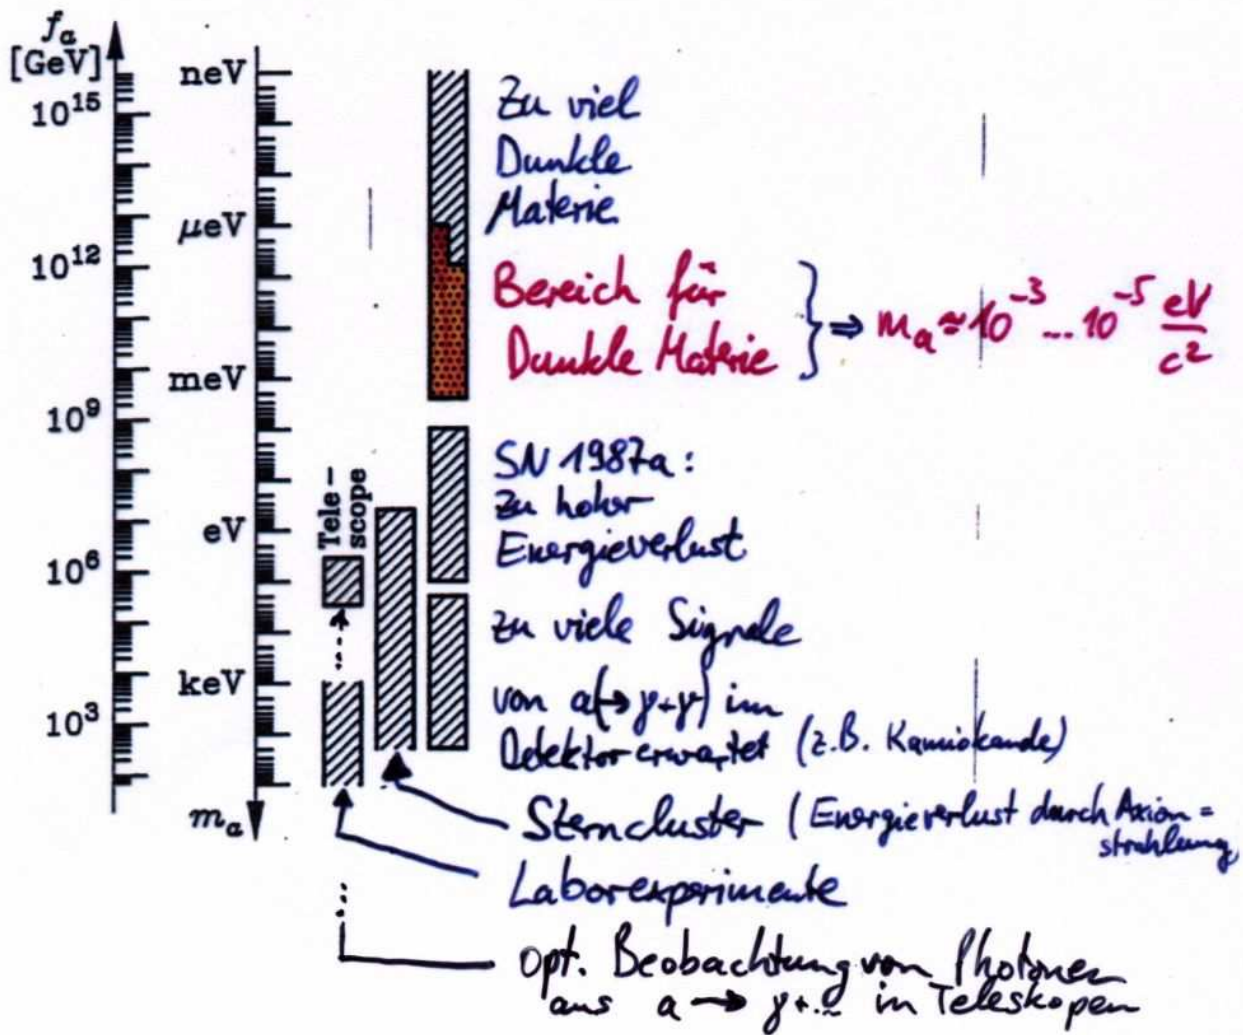 f_a
[GeV]
10^15
10^12
10^9
10^6
10^3
neV
μeV
meV
eV
keV
m_a
Tele-
scope
Zu viel
Dunkle
Materie
Bereich für
Dunkle Materie
} ⇒ m_a ≈ 10^-3 ... 10^-5 eV/c^2
SN 1987a:
Zu hoher
Energieverlust
Zu viele Signale
von a(→γ+γ) im
Detektor erwartet (z.B. Kamiokande)
Sterncluster (Energieverlust durch Axion=
strahlung
Laborexperimente
opt. Beobachtung von Photonen
aus a → γ+... in Teleskopen